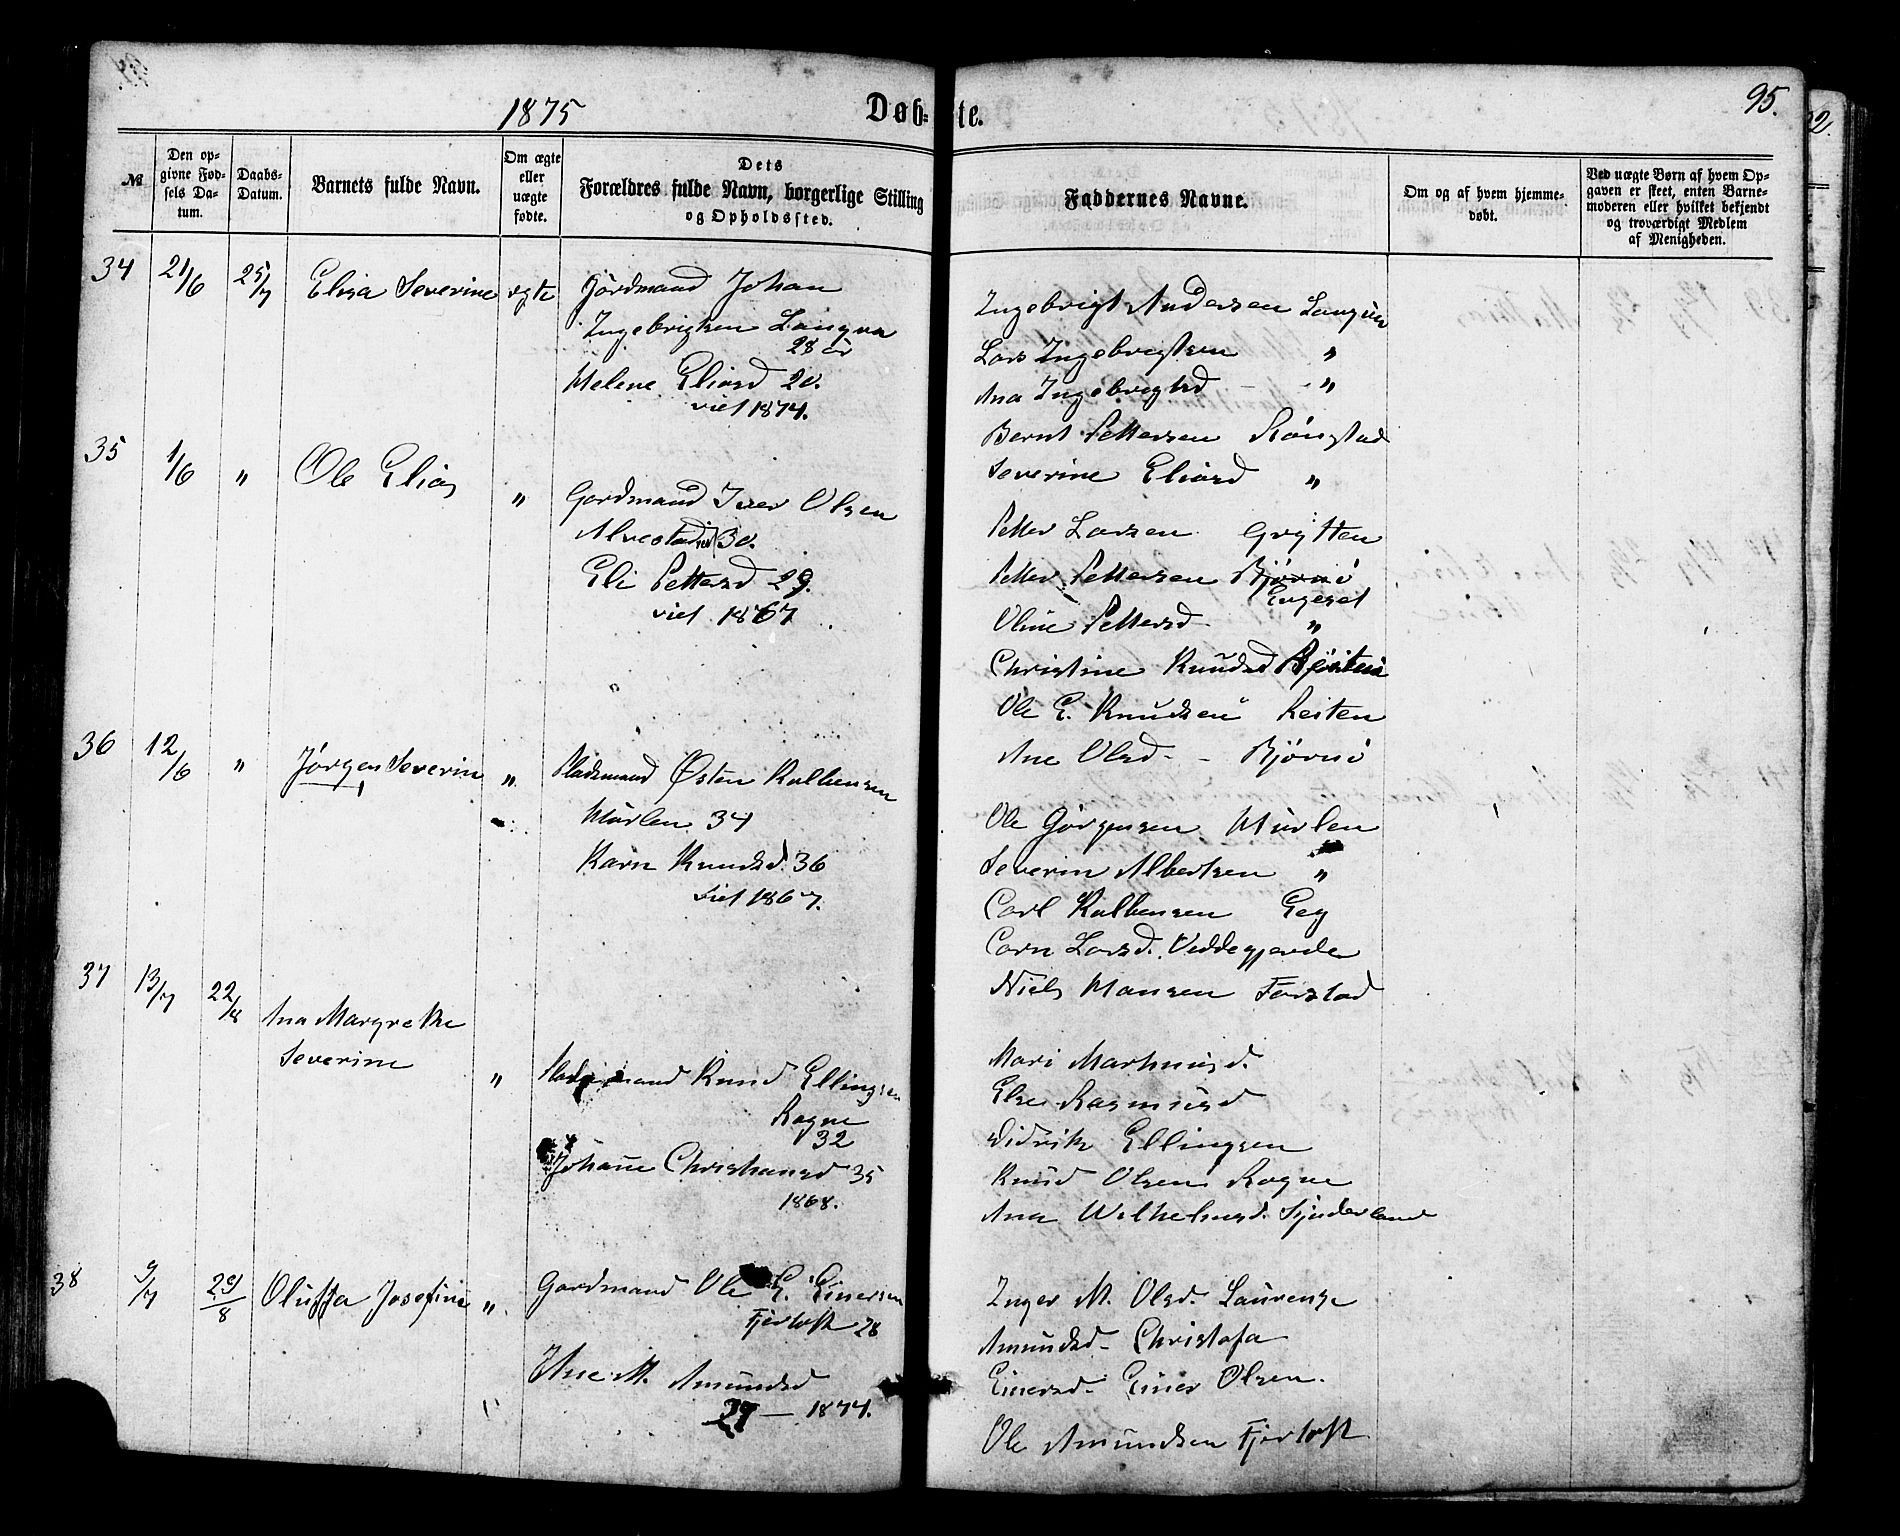 1875
Døb-
te.
95.
№
Den op-
givne Fød-
sels Da-
tum.
Daabs-
Datum.
Barnets fulde Navn.
Om ægte
eller
uægte
fødte.
Dets
Forældres fulde Navn, borgerlige Stilling
og Opholdssted.
Faddernes Navne.
Om og af hvem hjemme-
døbt.
Ved uægte Børn af hvem Op-
gaven er skeet, enten Barne-
moderen eller hvilket bekjendt
og troværdigt Medlem
af Menigheden.
34 21/6 25/7 Elisa Severine egte Gårdmand Johan
Ingebrigtsen Langva
28 år
Helene Eliasd 20.
viet 1874.
Ingebrigt Andersen Langva
Lars Ingebrigtsen "
Ana Ingebrigtsd - "
Bernt Pettersen Rønstad
Severine Eliasd "
35 1/6 " Ole Elias " Gardmand Iver Olsen
Alvestad 30.
Eli Pettersd 29.
viet 1867
Petter Larsen Grytten
Petter Pettersen Bjørnø
Engeset
Oline Pettersd. "
Christine Knudsd
Ole E. Knudsen Reiten
Ane Olsd. - Bjørnø
36 12/6 " Jørgen Severin " Pladsmand Østen Kolbensen
Hurlen 34
Karn Knudsd. 36
viet 1867.
Ole Gørgensen Hurlen
Severin Albertsen "
Carl Kolbensen Eeg
Carn Larsd. Veddegjerde
Niels Hansen Farstad
37 13/7 22/8 Ana Margrethe
Severine
" Pladsmand Knud Ellingsen
Rogne
32
Johane Christiansd 35
1868.
Mari Marthinusd.
Else Rasmusd
Didrik Ellingsen
Knud Olsen Rogne
Ana Wilhelmsd. Synderland
38 9/7 29/8 Oluffa Josefine " Gardmand Ole E. Einersen
Fjørtoft 28
Ane M. Amundsd
27 — 1874.
Inger M. Olsd. Laurense
Amundsd - Christofa
Einersd - Einer Olsen.
Ole Amundsen Fjørtoft